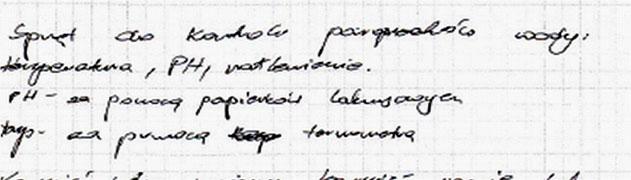 Sprzęt do kontroli parametrów wody:
temperatura, PH, natlenienie.
PH - za pomocą papierków lakmusowych
temp- za pomocą termometra